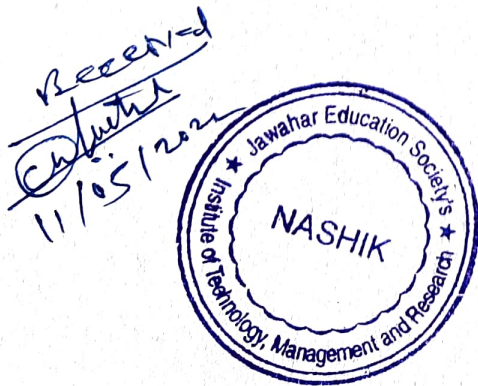 Received
11/05/2022
Jawahar Education Society's
★ Institute of Technology, Management and Research ★
NASHIK